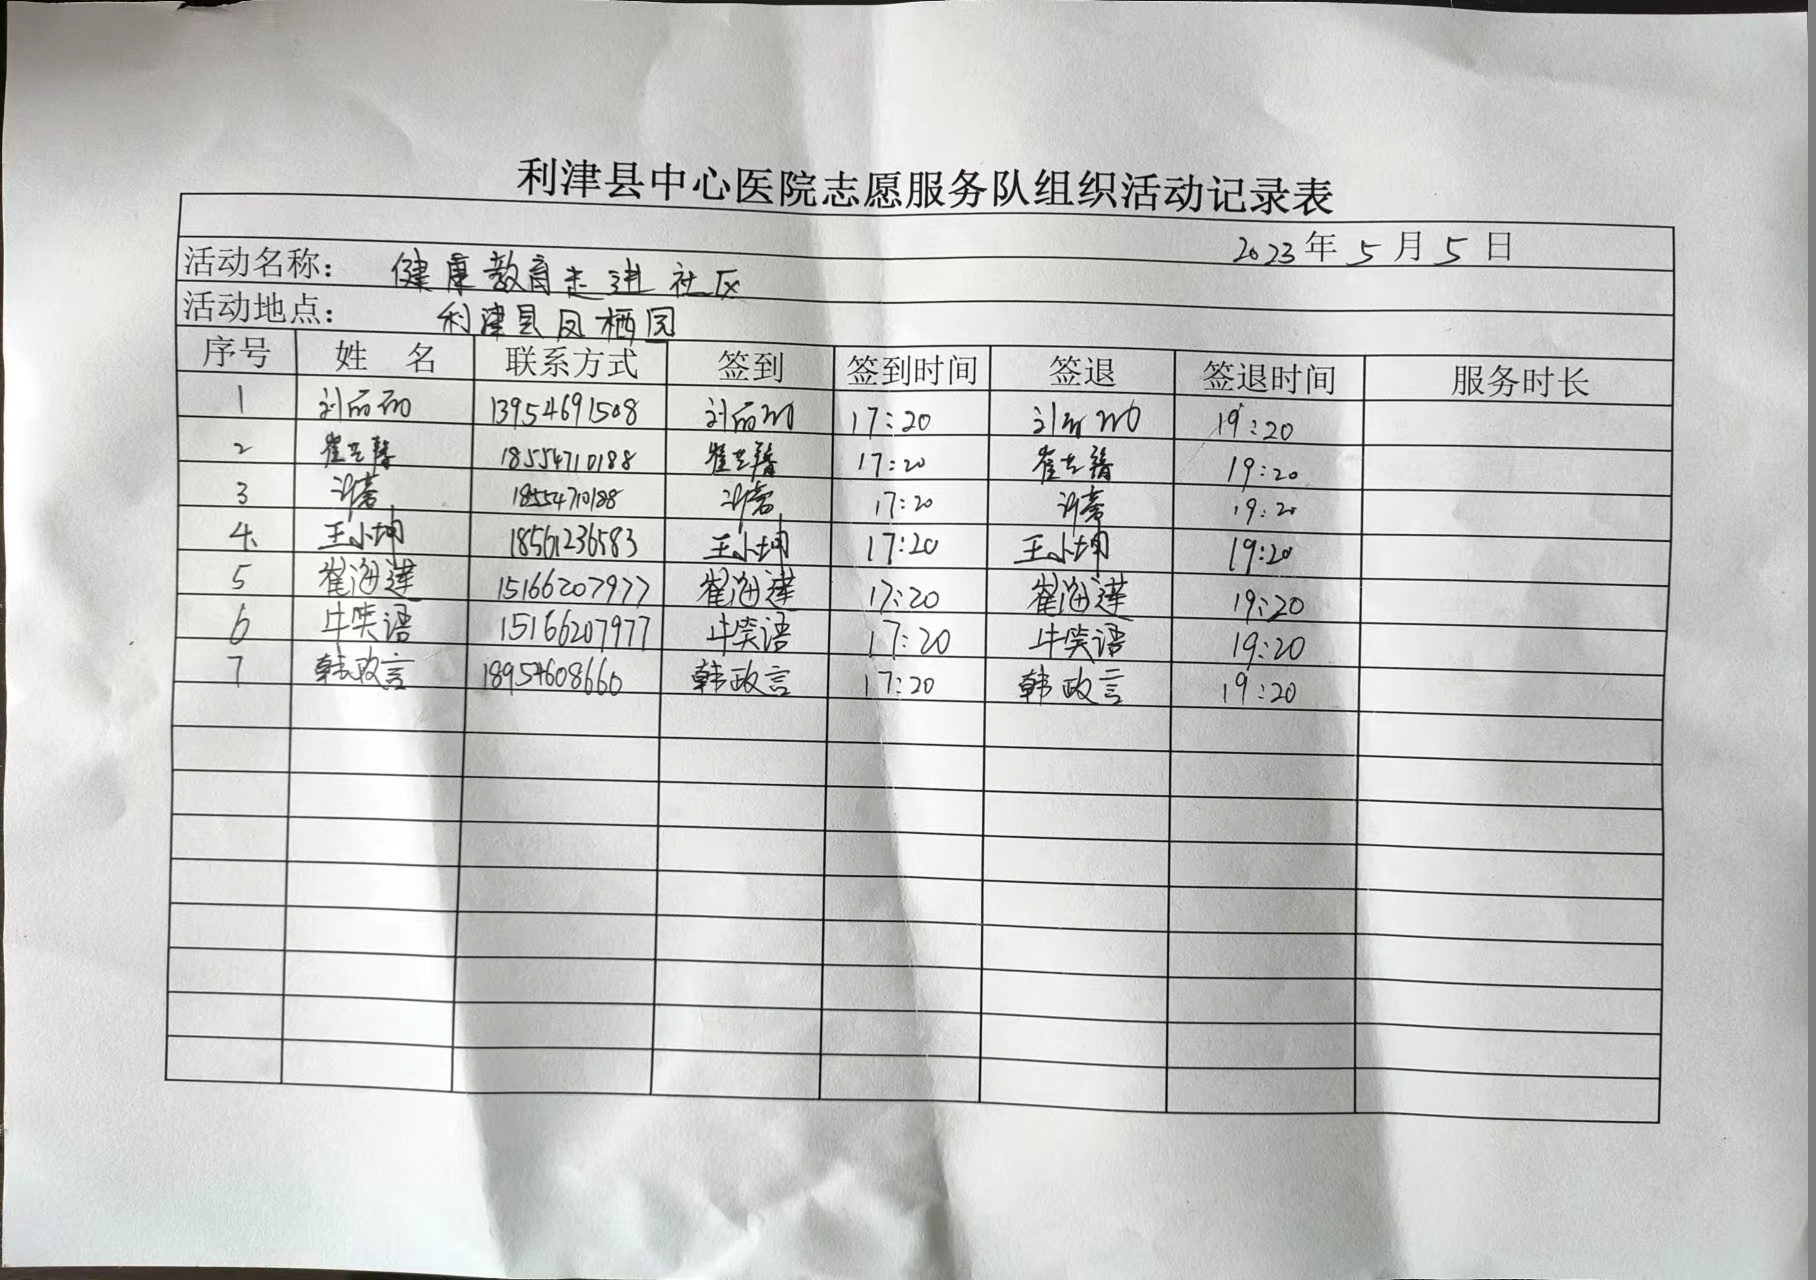 利津县中心医院志愿服务队组织活动记录表
2023年5月5日
活动名称： 健康教育走进社区
活动地点： 利津县凤栖园
序号 姓 名 联系方式 签到 签到时间 签退 签退时间 服务时长
1 刘丽丽 13954691508 刘丽丽 17:20 刘丽丽 19:20
2 崔 18554710188 崔 17:20 崔 19:20
3 18554710188 17:20 19:20
4 王小坤 18561236583 王小坤 17:20 王小坤 19:20
5 崔海莲 15166207977 崔海莲 17:20 崔海莲 19:20
6 牛笑语 15166207977 牛笑语 17:20 牛笑语 19:20
7 韩政言 18954608660 韩政言 17:20 韩政言 19:20